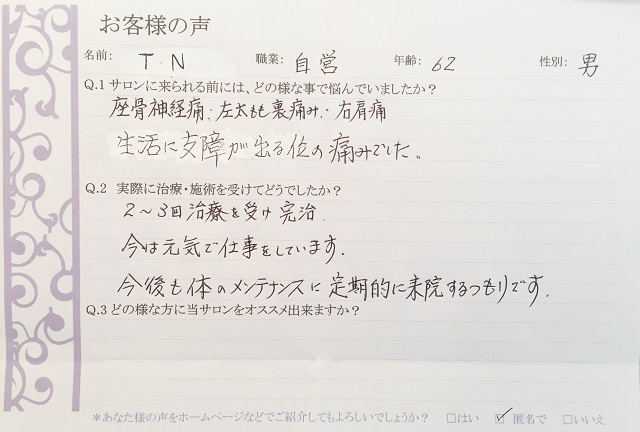 お客様の声
名前: T.N 職業: 自営 年齢: 62 性別: 男
Q.1 サロンに来られる前には、どの様な事で悩んでいましたか？
座骨神経痛・左太もも裏痛み・右肩痛
生活に支障が出る位の痛みでした。
Q.2 実際に治療・施術を受けてどうでしたか？
2〜3回治療を受け完治.
今は元気で仕事をしています.
今後も体のメンテナンスに定期的に来院するつもりです.
Q.3 どの様な方に当サロンをオススメ出来ますか？
＊あなた様の声をホームページなどでご紹介してもよろしいでしょうか？ □はい ☑匿名で □いいえ